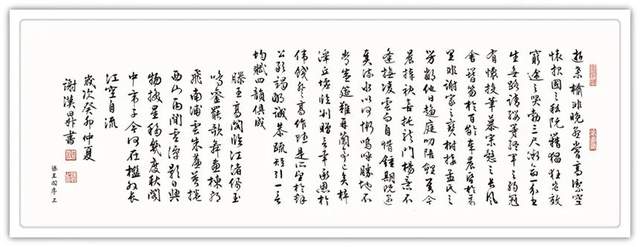 逝桑榆非晚孟嘗高潔空
懷報國之秋阮籍猖狂豈效
窮途之哭勃三尺微命一介書
生無路請纓等終軍之弱冠
有懷投筆慕宗慤之長風
舍簪笏於百齡奉晨昏於萬
里非謝家之寶樹接孟氏之
芳鄰他日趨庭叨陪鯉對今
晨捧袂喜托龍門楊意不
逢撫凌雲而自惜鍾期既遇
奏流水以何慚嗚呼勝地不
常盛筵難再蘭亭已矣梓
澤丘墟臨別贈言幸承恩於
偉餞登高作賦是所望於群
公敢竭鄙誠恭疏短引一言
均賦四韻俱成
滕王高閣臨江渚佩玉
鳴鸞罷歌舞畫棟朝
飛南浦雲朱簾暮捲
西山雨閑雲潭影日悠
物換星移幾度秋閣
中帝子今何在檻外長
江空自流
歲次癸卯仲夏
謝漢昇書
滕王閣序